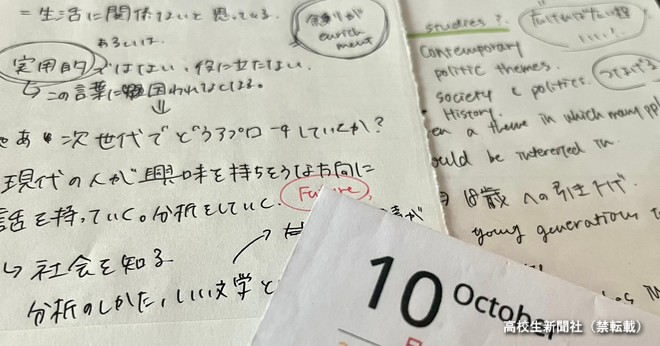 = 生活に関係ないと思っている.
あるいは.
実用的ではない、役に立たない.
↳ この言葉に囚われなくなる。
⇓
次世代でどうアプローチしていくか?
現代の人が興味を持ちそうな方向に
話を持っていく。分析をしていく.
Future
↳ 社会を知る
分析のしかた、いい文学と
が
enrich
ment
studies?
Contemporary
politic themes.
society & politics.
History.
a theme in which many
ould be interested in.
18歳への引き下げ.
young generations
10 October
高校生新聞社（禁転載）